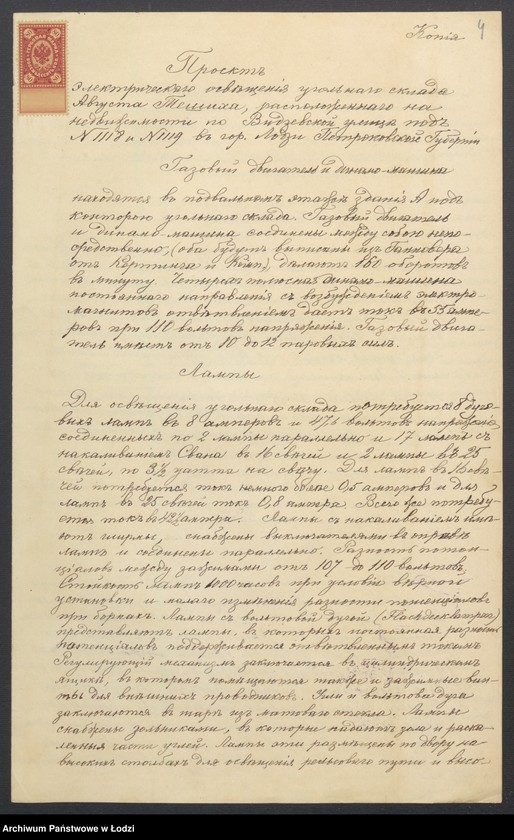 Копія 4
Проектъ
электрическаго освѣщенія угольнаго склада
Августа Тешиха, расположеннаго на
недвижимости по Видзевской улицѣ подъ
N 1118 и N 1119 въ гор. Лодзи Петроковской Губерніи
Газовый двигатель и динамо-машина
находятся во подвальномъ этажѣ зданія А подъ
конторою угольнаго склада. Газовый двигатель
и динамо-машина соединены между собою непо-
средственно, (оба будутъ выписаны изъ Ганновера
отъ Кертинга и Комп), дѣлаютъ 160 оборотовъ
въ минуту. Четырехполюсная динамо-машина
постояннаго направленія съ возбужденіемъ электро-
магнитовъ отвѣтвленіемъ даетъ токъ въ 55 ампе-
ровъ при 110 вольтовъ напряженія. Газовый двига-
тель имѣетъ отъ 10 до 12 паровыхъ силъ.
Лампы
Для освѣщенія угольнаго склада потребуется 8 дуго-
выхъ лампъ въ 8 амперовъ и 47½ вольтовъ напряженія,
соединенныхъ по 2 лампы параллельно и 17 лампъ съ
накаливаніемъ Свана въ 16 свѣчей и 2 лампы въ 25
свѣчей, по 3½ уатта на свѣчу. Для лампъ въ 16 свѣ-
чей потребуется токъ немного болѣе 0,5 амперовъ и для
лампъ въ 25 свѣчей токъ 0,8 ампера. Всего потребу-
ется токъ въ амперы. Лампы съ накаливаніемъ имѣ-
ютъ ширмы, снабжены выключателями въ оправѣ
лампъ и соединены параллельно. Разность потен-
ціаловъ между зажимами отъ 107 до 110 вольтовъ.
Стойкость лампъ 1000 часовъ при условіи вѣрной
установки и малаго измѣненія разности потенціаловъ
при борнахъ. Лампы съ вольтовой дугой
представляютъ лампы, въ которыхъ постоянная разность
потенціаловъ поддерживается отвѣтвленнымъ токомъ
Регулирующій механизмъ заключается въ цилиндрическомъ
ящикѣ, въ которомъ помѣщаются также и зажимные вин-
ты для внѣшнихъ проводниковъ. Угли и вольтова дуга
заключаются въ шарѣ изъ матоваго стекла. Лампы
снабжены зольниками, въ которые падаютъ зола и раска-
ленныя части углей. Лампы эти размѣщены по двору на
высокихъ столбахъ для освѣщенія рельсоваго пути и высо-
Archiwum Państwowe w Łodzi